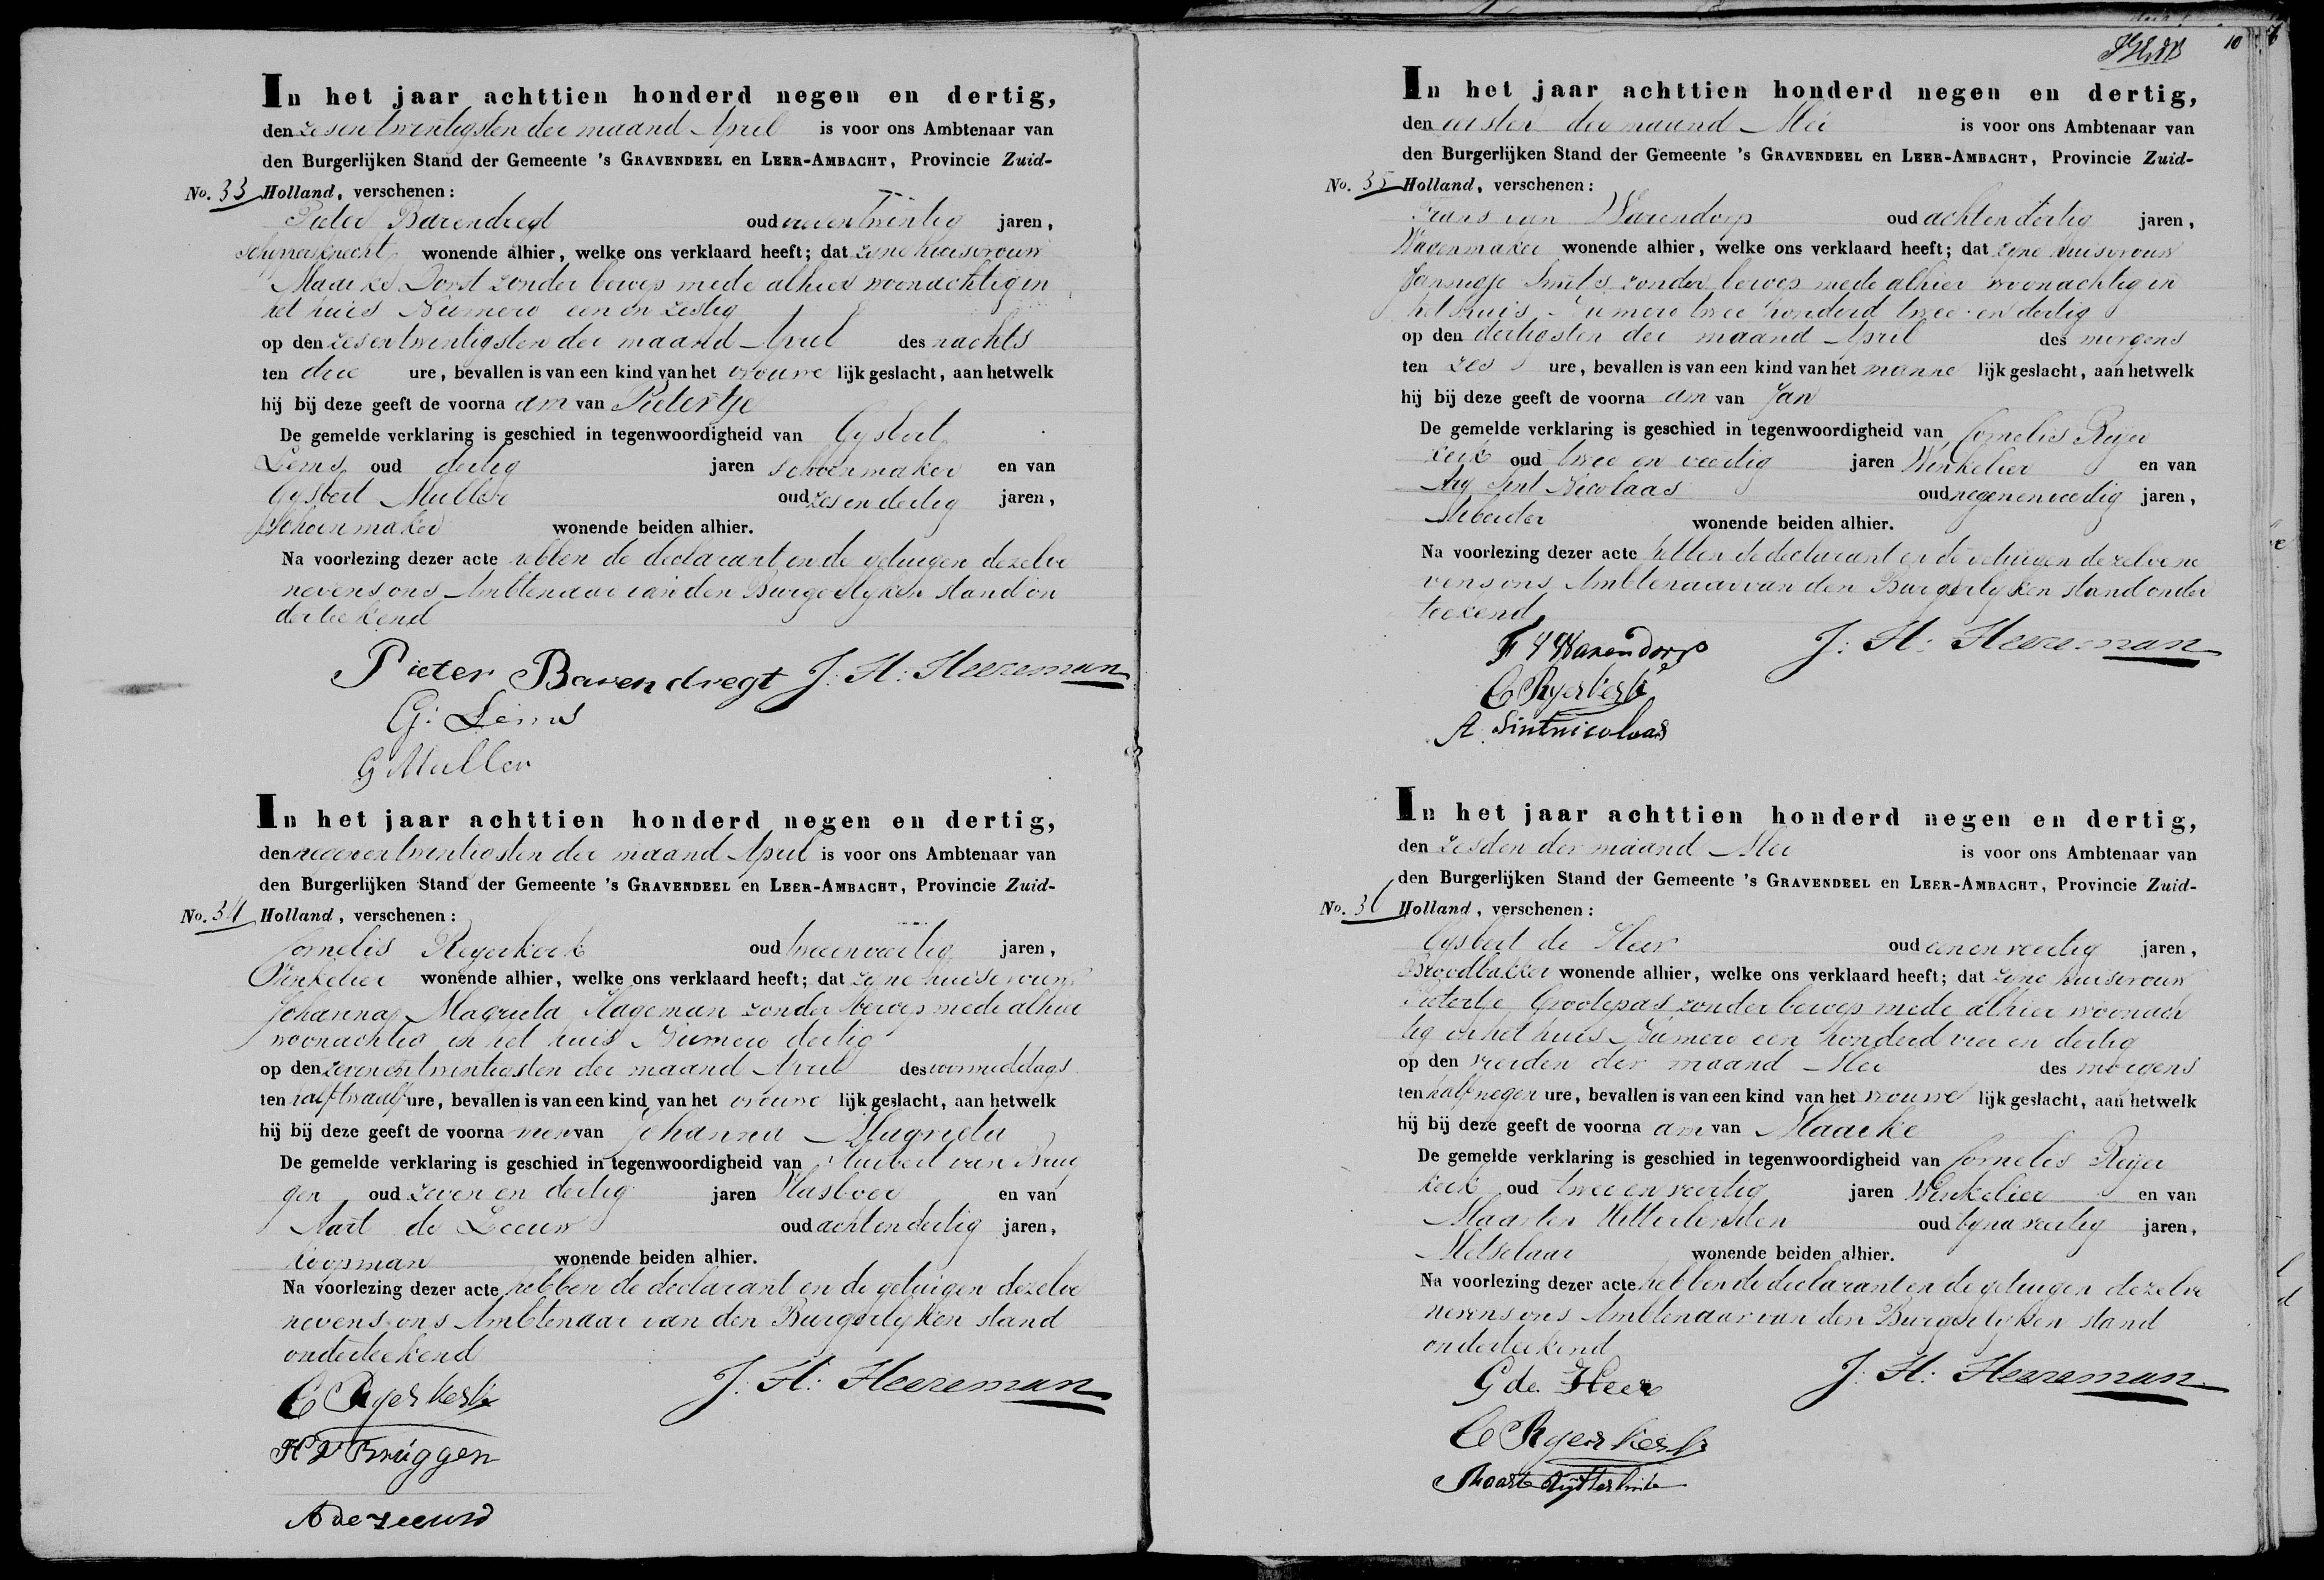 In het jaar achttien honderd negen en dertig,
den zesentwintigsten der maand April is voor ons Ambtenaar van
den Burgerlijken Stand der Gemeente 's Gravendeel en Leer-Ambacht, Provincie Zuid-
No. 33 Holland, verschenen:
Pieter Barendregt oud twintig jaren,
wonende alhier, welke ons verklaard heeft; dat zyne huisvrouw
Maaike Dorst zonder beroep mede alhier woonachtig in
het huis Numero een en zestig
op den zesentwintigsten der maand April des nachts
ten drie ure, bevallen is van een kind van het vrouwe lijk geslacht, aan hetwelk
hij bij deze geeft de voorna am van Pietertje
De gemelde verklaring is geschied in tegenwoordigheid van Gysbert
Lems oud dertig jaren schoenmaker en van
Gysbert Muller oud zesendertig jaren,
Schoenmaker wonende beiden alhier.
Na voorlezing dezer acte hebben de declarant en de getuigen dezelve
nevens ons Ambtenaar van den Burgerlyken stand on
derteekend
Pieter Barendregt J. H. Heereman
G: Lems
G Muller
In het jaar achttien honderd negen en dertig,
den negenentwintigsten der maand April is voor ons Ambtenaar van
den Burgerlijken Stand der Gemeente 's Gravendeel en Leer-Ambacht, Provincie Zuid-
No. 34 Holland, verschenen:
Cornelis Reyerkerk oud tweeenveertig jaren,
Winkelier wonende alhier, welke ons verklaard heeft; dat zyne huisvrouw
Johanna Magrieta Hageman zonder beroep mede alhier
woonachtig in het huis Numero dertig
op den zevenentwintigsten der maand April des voormiddags
ten half twaalf ure, bevallen is van een kind van het vrouwe lijk geslacht, aan hetwelk
hij bij deze geeft de voorna men van Johanna Magrieta
De gemelde verklaring is geschied in tegenwoordigheid van Huibert van Brug
gen oud zeven en dertig jaren Vlasboer en van
Aart de Leeuw oud achtendertig jaren,
koopman wonende beiden alhier.
Na voorlezing dezer acte hebben de declarant en de getuigen dezelve
nevens ons Ambtenaar van den Burgerlyken stand
onderteekend
C Ryerkerk J. H. Heereman
H V Bruggen
A de Leeuw
10
In het jaar achttien honderd negen en dertig,
den eersten der maand Mei is voor ons Ambtenaar van
den Burgerlijken Stand der Gemeente 's Gravendeel en Leer-Ambacht, Provincie Zuid-
No. 35 Holland, verschenen:
Frans van Warendorp oud achtendertig jaren,
Wagenmaker wonende alhier, welke ons verklaard heeft; dat zyne huisvrouw
Jannigje Smits zonder beroep mede alhier woonachtig in
het huis Numero twee honderd twee en dertig
op den dertigsten der maand April des morgens
ten zes ure, bevallen is van een kind van het manne lijk geslacht, aan hetwelk
hij bij deze geeft de voorna am van Jan
De gemelde verklaring is geschied in tegenwoordigheid van Cornelis Reyer
kerk oud twee en veertig jaren Winkelier en van
Ary Sint Nicolaas oud negenenveertig jaren,
Arbeider wonende beiden alhier.
Na voorlezing dezer acte hebben de declarant en de getuigen dezelve ne
vens ons Ambtenaar van den Burgerlyken stand onder
teekend
F V Warendorp J. H. Heereman
C Ryerkerk
A. Sintnicolaas
In het jaar achttien honderd negen en dertig,
den zesden der maand Mei is voor ons Ambtenaar van
den Burgerlijken Stand der Gemeente 's Gravendeel en Leer-Ambacht, Provincie Zuid-
No. 36 Holland, verschenen:
Gysbert de Heer oud eenenveertig jaren,
Broodbakker wonende alhier, welke ons verklaard heeft; dat zyne huisvrouw
Pietertje Grootepas zonder beroep mede alhier woonach
tig in het huis Numero een honderd vier en dertig
op den vierden der maand Mei des morgens
ten half negen ure, bevallen is van een kind van het vrouwe lijk geslacht, aan hetwelk
hij bij deze geeft de voorna am van Maaike
De gemelde verklaring is geschied in tegenwoordigheid van Cornelis Reyer
kerk oud twee en veertig jaren Winkelier en van
Maarten oud byna veertig jaren,
Metselaar wonende beiden alhier.
Na voorlezing dezer acte hebben de declarant en de getuigen dezelve
nevens ons Ambtenaar van den Burgerlyken stand
onderteekend
G de Heer J. H. Heereman
C Ryerkerk